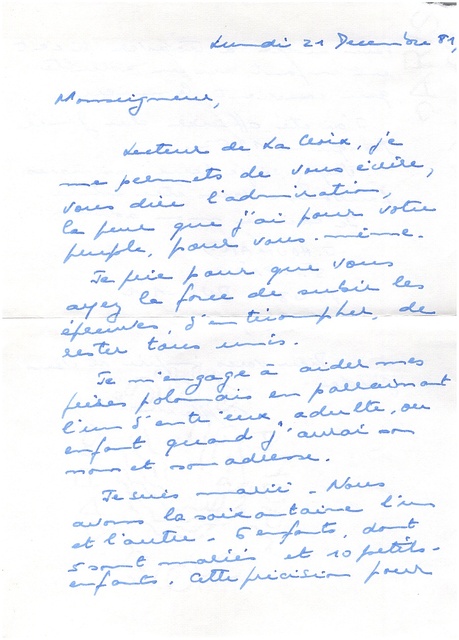 Lundi 21 Decembre 81,
Monseigneur,
Lecteur de La Croix, je
me permets de vous écrire,
vous dire l'admiration,
la peur que j'ai pour votre
peuple, pour vous-même.
Je prie pour que vous
ayez la force de subir les
épreuves, d'en triompher, de
rester tous unis.
Je m'engage à aider mes
frères polonais en parrainant
l'un d'entr'eux, adulte, ou
enfant quand j'aurai son
nom et son adresse.
Je suis marié - Nous
avons la soixantaine l'un
et l'autre - 6 enfants, dont
5 sont mariés et 10 petits-
enfants. Cette précision pour